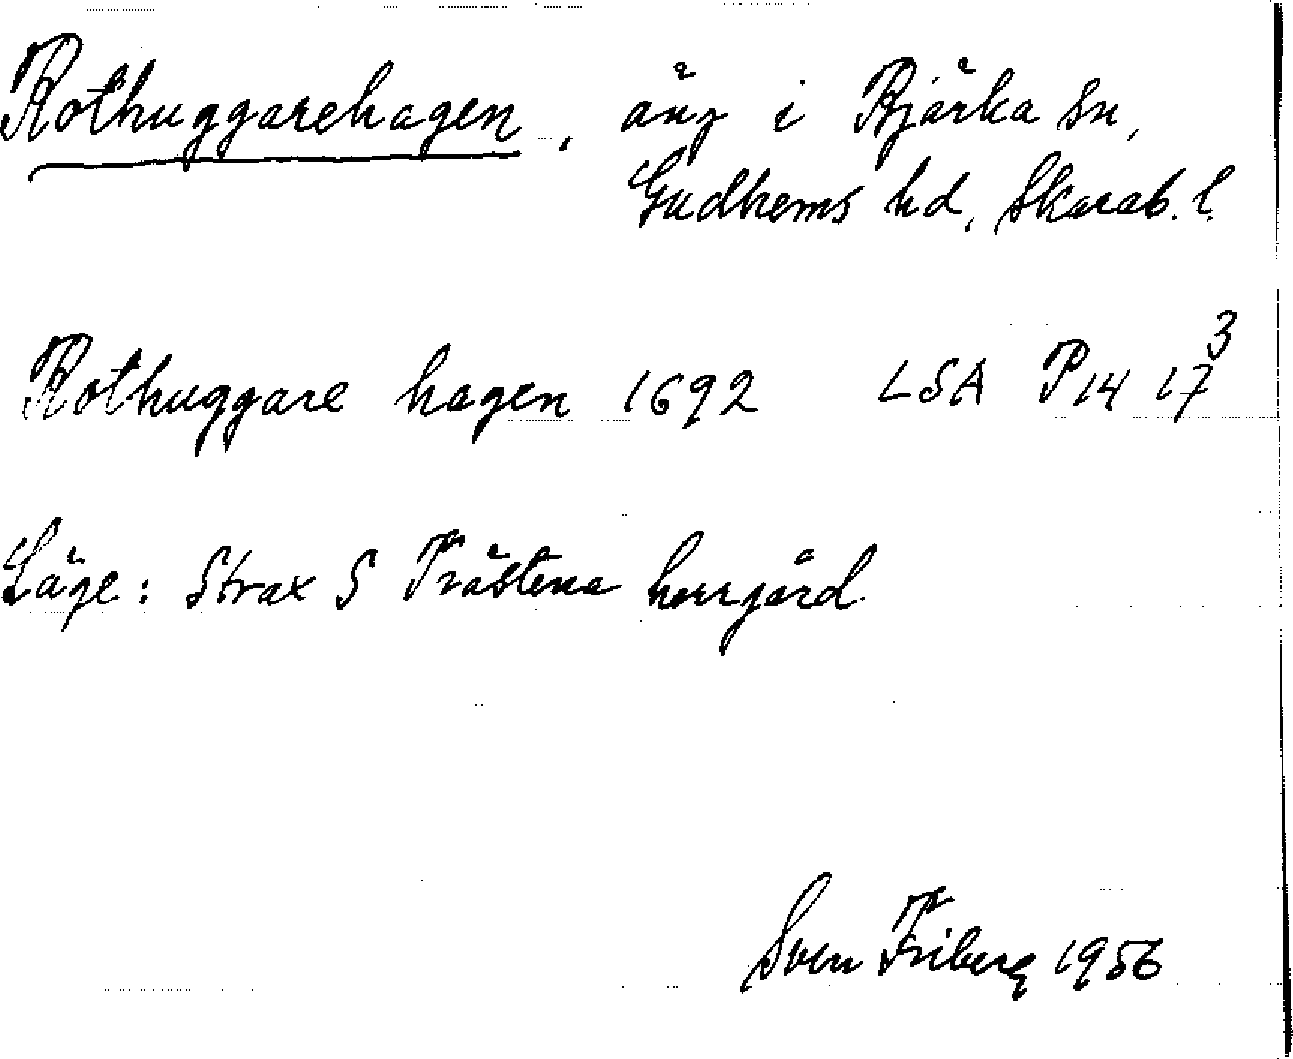 Rothuggarehagen, äng i Bjärka sn,
Gudhems hd, Skarab. l.
Rothuggare hagen 1692 LSA P14 17³
Läge: Strax S Prästena herrgård
Sven Friberg 1956